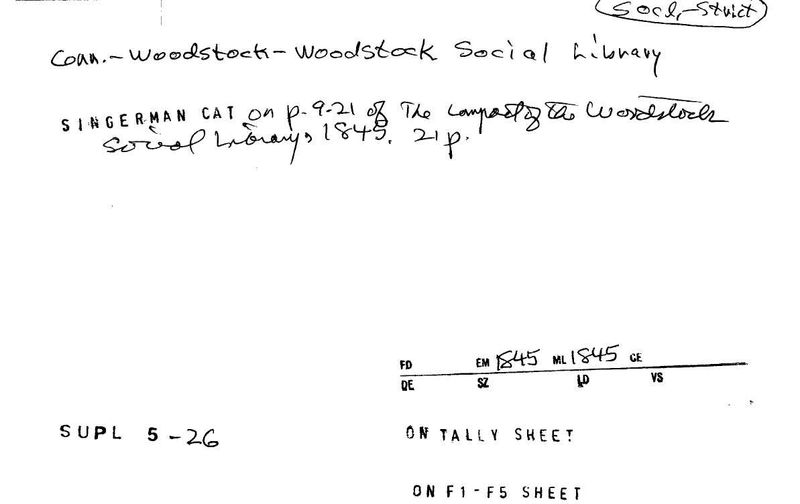 Socl-Strict
Conn.-Woodstock-Woodstock Social Library
SINGERMAN CAT on p. 9-21 of The Compact of the Woodstock
Social Library, 1845. 21 p.
FD EM 1845 ML 1845 CE
DE SZ LD VS
SUPL 5-26
ON TALLY SHEET
ON F1-F5 SHEET